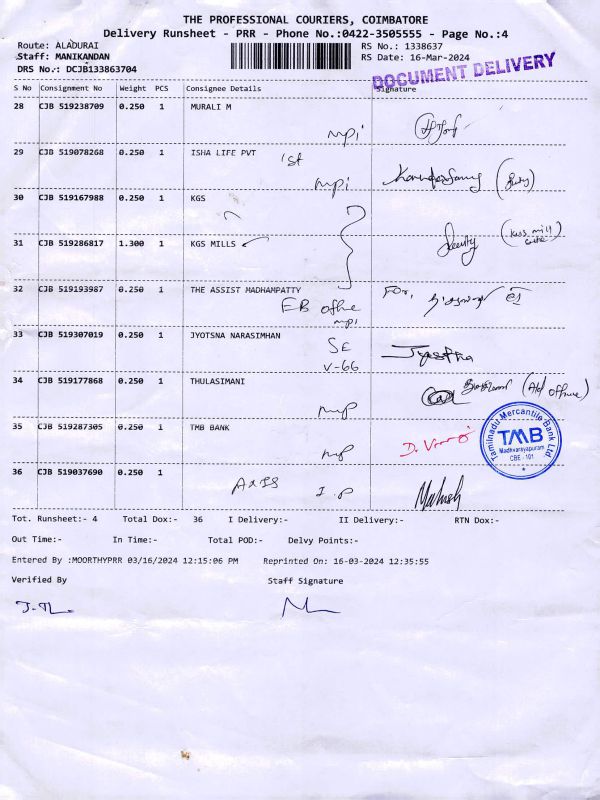 THE PROFESSIONAL COURIERS, COIMBATORE
Delivery Runsheet - PRR - Phone No.:0422-3505555 - Page No.:4
Route: ALADURAI RS No.: 1338637
Staff: MANIKANDAN RS Date: 16-Mar-2024
DRS No.: DCJB133863704
DOCUMENT DELIVERY
S No Consignment No Weight PCS Consignee Details Signature
28 CJB 519238709 0.250 1 MURALI M
mpi
29 CJB 519078268 0.250 1 ISHA LIFE PVT 1st
mpi
30 CJB 519167988 0.250 1 KGS
31 CJB 519286817 1.300 1 KGS MILLS
32 CJB 519193987 0.250 1 THE ASSIST MADHAMPATTY For,
EB office
mpi
33 CJB 519307019 0.250 1 JYOTSNA NARASIMHAN SE
V-66
34 CJB 519177868 0.250 1 THULASIMANI
mp
35 CJB 519287305 0.250 1 TMB BANK
mp D.
Tamilnadu Mercantile Bank Ltd
TMB
Madhvarayapuram
CBE - 101
36 CJB 519037690 0.250 1
AXIS I.P Mahesh
Tot. Runsheet:- 4 Total Dox:- 36 I Delivery:- II Delivery:- RTN Dox:-
Out Time:- In Time:- Total POD:- Delvy Points:-
Entered By :MOORTHYPRR 03/16/2024 12:15:06 PM Reprinted On: 16-03-2024 12:35:55
Verified By Staff Signature